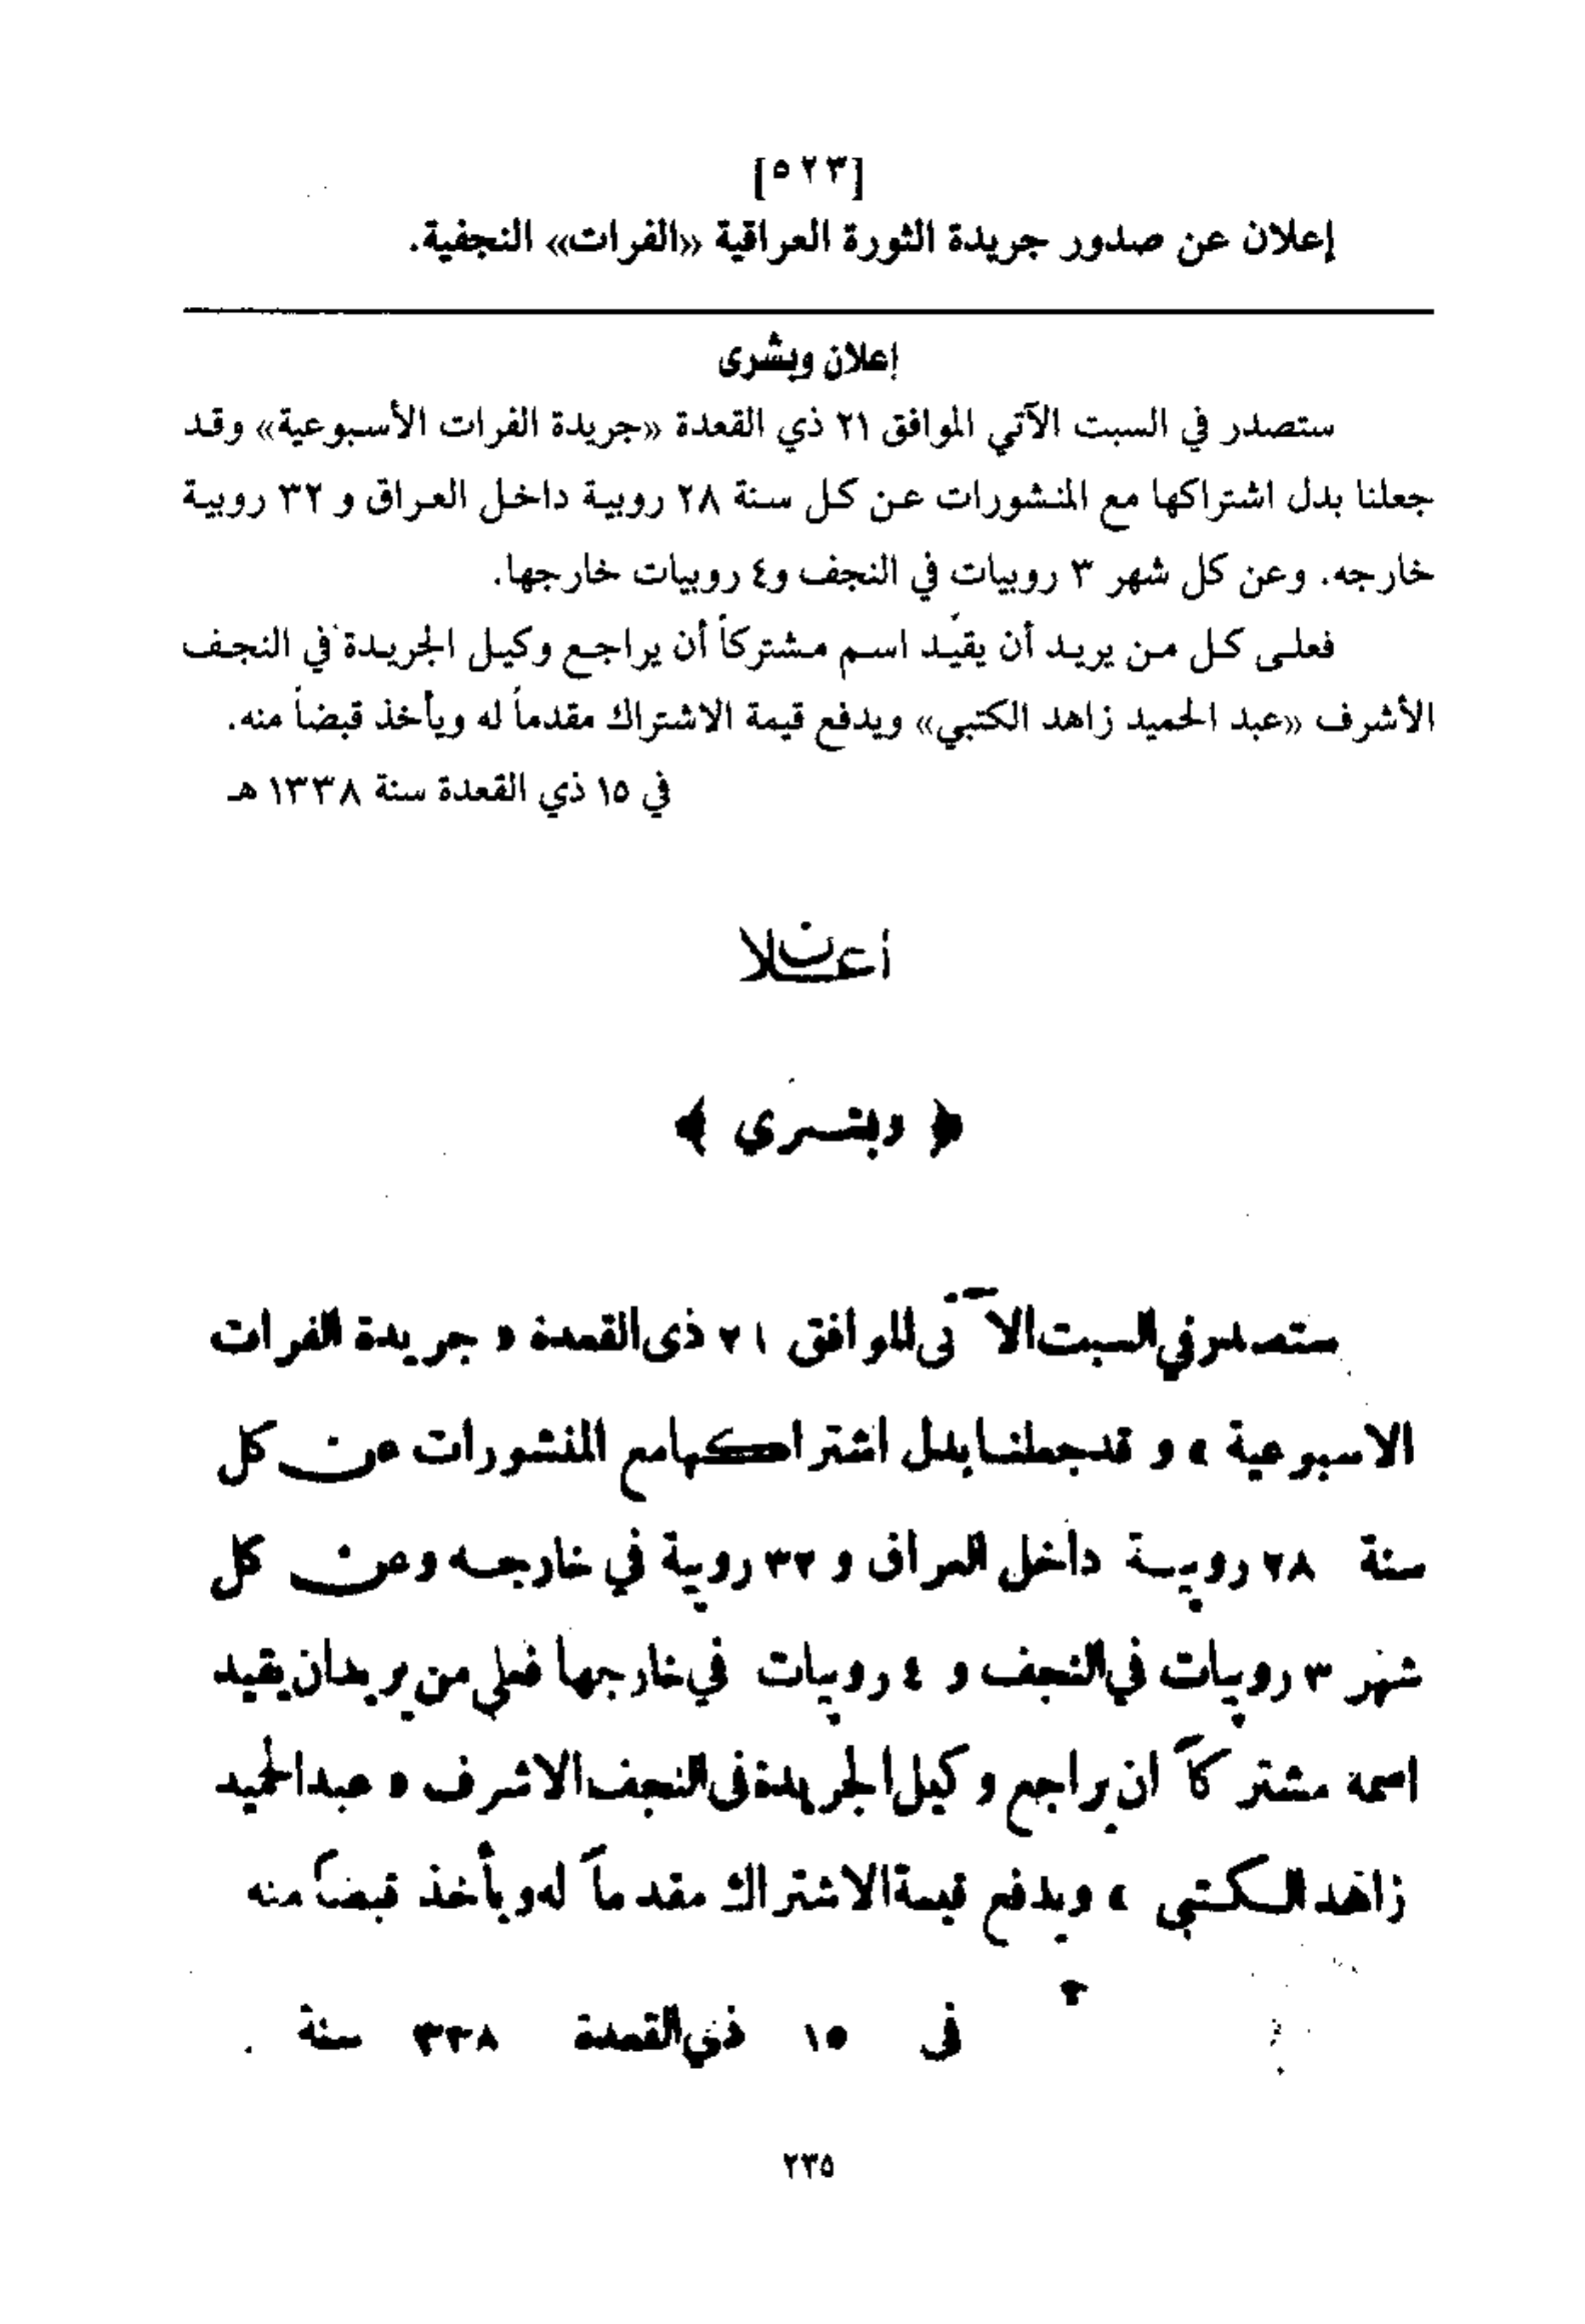 [٥٢٣]
إعلان عن صدور جريدة الثورة العراقية «الفرات» النجفية.
إعلان وبشرى
ستصدر في السبت الآتي الموافق ٢١ ذي القعدة «جريدة الفرات الأسبوعية» وقد
جعلنا بدل اشتراكها مع المنشورات عن كل سنة ٢٨ روبية داخل العراق و ٣٢ روبية
خارجه. وعن كل شهر ٣ روبيات في النجف و٤ روبيات خارجها.
فعلى كل من يريد أن يقيّد اسم مشتركاً أن يراجع وكيل الجريدة في النجف
الأشرف «عبد الحميد زاهد الكتبي» ويدفع قيمة الاشتراك مقدماً له ويأخذ قبضاً منه.
في ١٥ ذي القعدة سنة ١٣٣٨ هـ
أعلان
﴿ وبشرى ﴾
ستصدر في السبت الآتى الموافق ٢١ ذى القعدة « جريدة الفرات
الاسبوعية » وقد جعلنا بدل اشتراكها مع المنشورات عن كل
سنة ٢٨ روبية داخل العراق و ٣٢ روبية في خارجه وعن كل
شهر ٣ روبيات في النجف و ٤ روبيات في خارجها فعلى من يريد ان يقيد
اسمه مشتركاً ان يراجع وكيل الجريدة فى النجف الاشرف « عبد الحميد
زاهد الكتبي » ويدفع قيمة الاشتراك مقدماً له ويأخذ قبضاً منه
فى ١٥ ذي القعدة ٣٣٨ سنة
٢٣٥